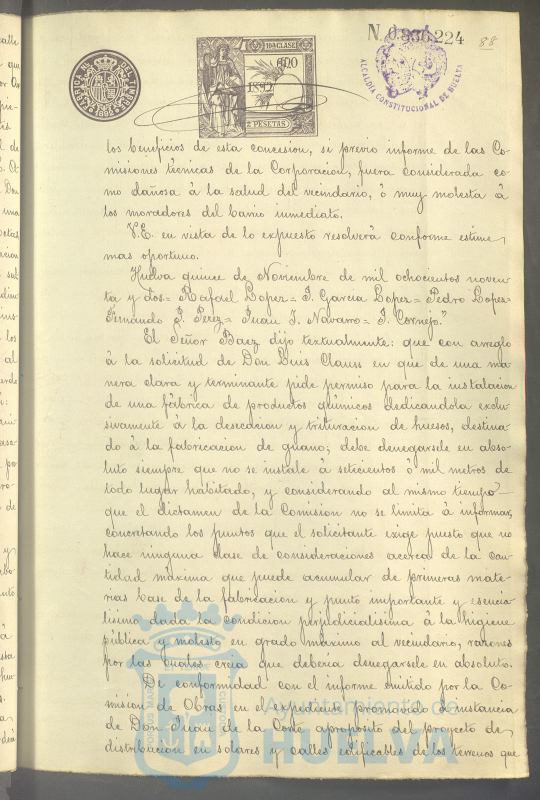 N. 0.836.224
88
10ª CLASE
1892
2 PESETAS
ALCALDÍA CONSTITUCIONAL DE HUELVA
los beneficios de esta concesion, si previo informe de las Co-
misiones técnicas de la Corporacion, fuera considerada co-
mo dañosa á la salud del vecindario, ó muy molesta á
los moradores del barrio inmediato.
V.E. en vista de lo expuesto resolverá conforme estime
mas oportuno.
Huelva quince de Noviembre de mil ochocientos noven-
ta y dos = Rafael Lopez = J. Garcia Lopez = Pedro Lopez =
Fernando J. Perez = Juan J. Navarro = J. Cornejo."
El Señor Baez dijo textualmente: que con arreglo
á la solicitud de Don Luis Clauss en que de una ma-
nera clara y terminante pide permiso para la instalacion
de una fábrica de productos químicos dedicandola exclu-
sivamente á la desecacion y trituracion de huesos, destina-
do á la fabricacion de guano; debe denegarsele en abso-
luto siempre que no se instale á setecientos ó mil metros de
todo lugar habitado, y considerando al mismo tiempo
que el dictamen de la Comision no se limita á informar,
concretando los puntos que el solicitante exige puesto que no
hace ninguna clase de consideraciones acerca de la can-
tidad máxima que puede acumular de primeras mate-
rias base de la fabricacion y punto importante y esencia-
lisimo dada la condicion perjudicialisima á la higiene
pública y molesto en grado máximo al vecindario, razones
por las cuales creia que deberia denegarsele en absoluto.
De conformidad con el informe emitido por la Co-
mision de Obras en el expediente promovido á instancia
de Don Juan de la Corte aproposito del proyecto de
distribucion en solares y calles edificables de los terrenos que
Ayuntamiento de
HUELVA